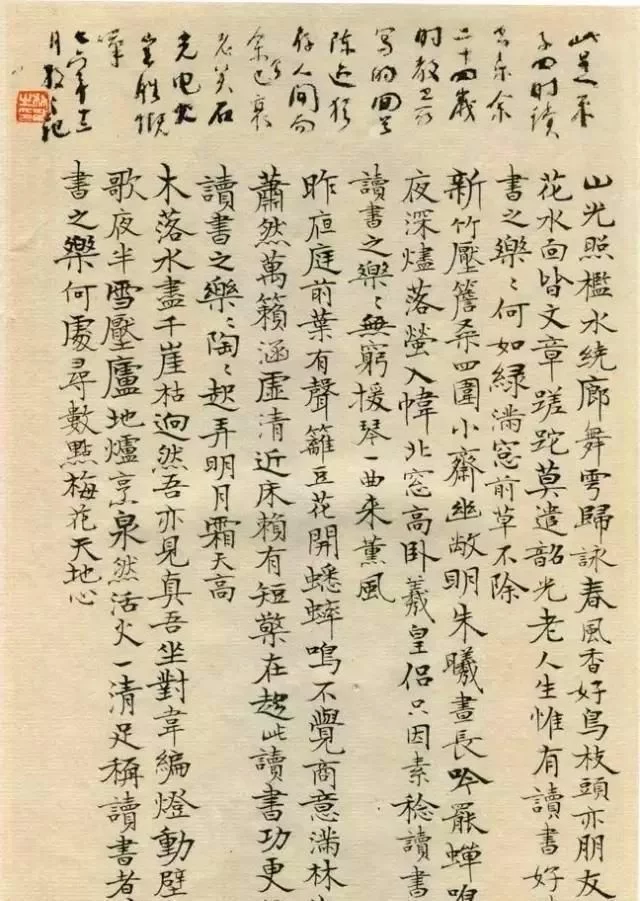 此是
子四时读
書樂余
二十四歲
时教
写的
陈迹犹
存人间而
余已衰
老矣石
光电火
豈胜慨
七六年十二
月 記
山光照檻水绕廊舞雩歸詠春風香好鳥枝頭亦朋友
花水面皆文章蹉跎莫遣韶光老人生惟有讀書好
書之樂〻何如綠滿窓前草不除
新竹壓簷桑四圍小齋幽敞明朱曦晝長吟罷蟬鳴
夜深燼落螢入幃北窓高卧羲皇侣只因素稔讀書
讀書之樂〻無窮援琴一曲来薰風
昨夜庭前葉有聲籬豆花開蟋蟀鳴不覺商意滿林
蕭然萬籟涵虛清近床賴有短檠在趁此讀書功更
讀書之樂〻陶〻起弄明月霜天高
木落水盡千崖枯迥然吾亦見真吾坐對韋編燈動壁
歌夜半雪壓廬地爐烹泉然活火一清足稱讀書者
書之樂何處尋數點梅花天地心